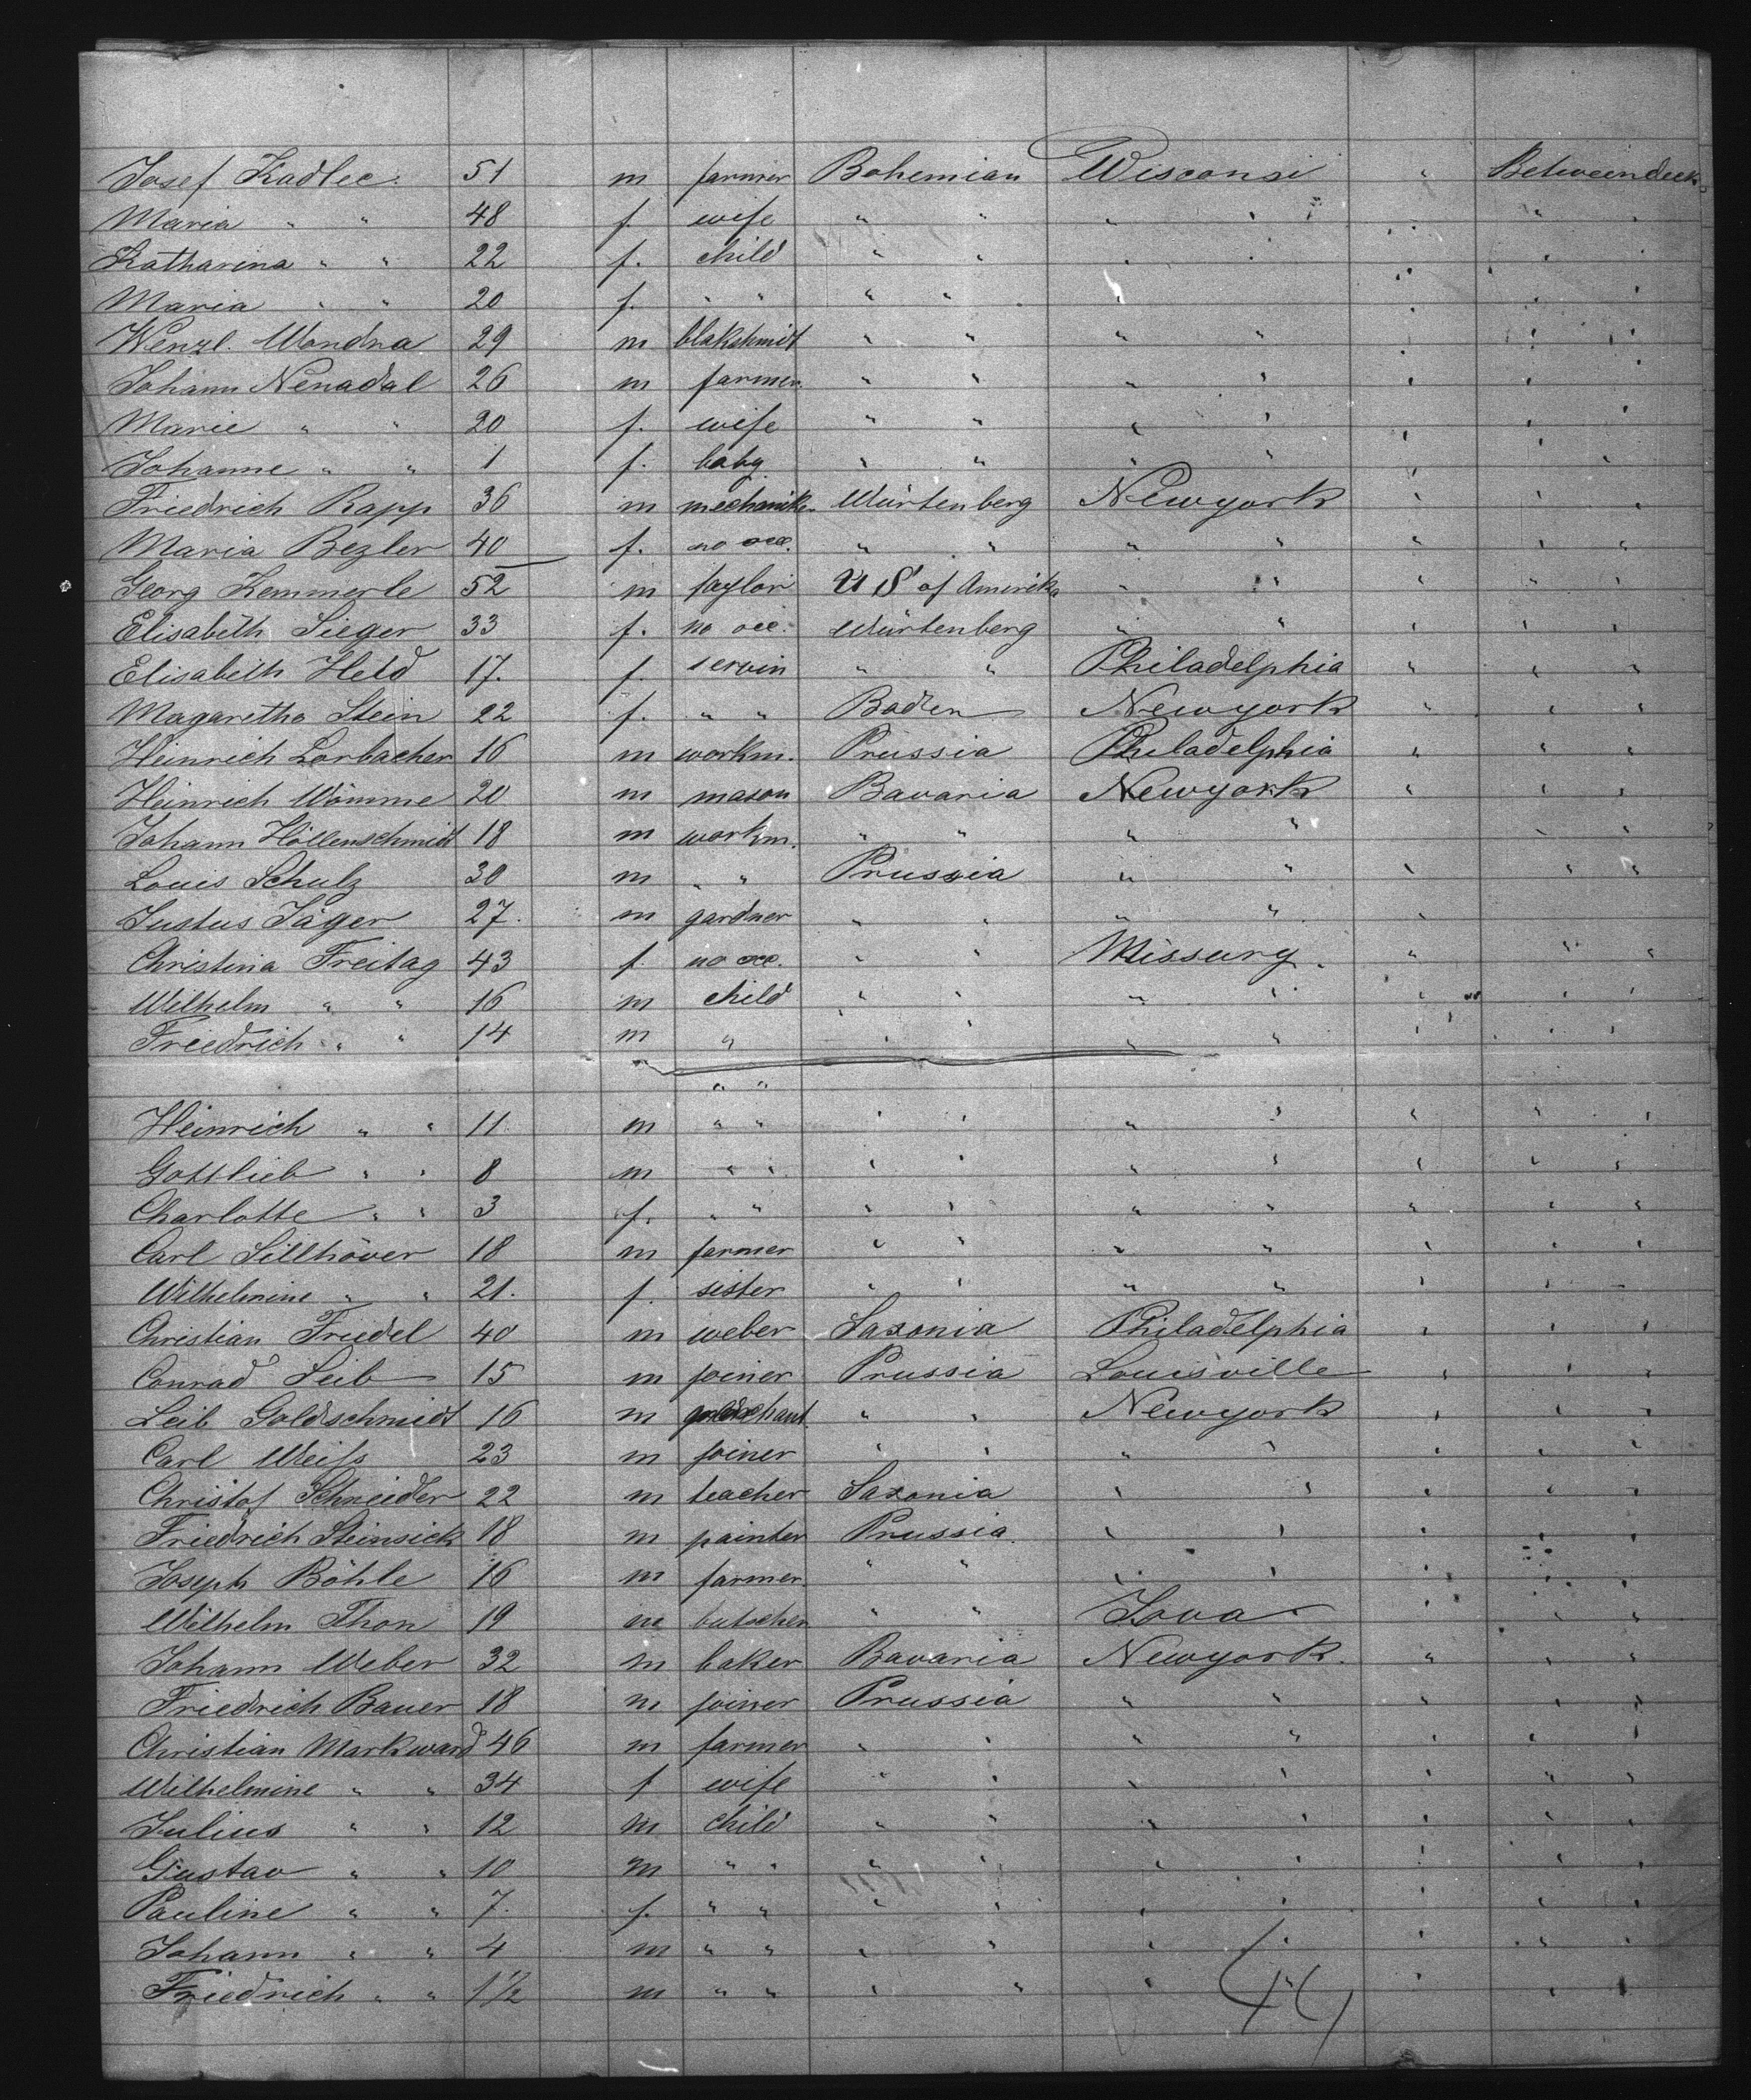 Josef Kadlec. 51 m farmer Bohemian Wisconsi " Betweendeck
Maria " " 48 f. wife " " " " " " "
Katharina " " 22 f. child " " " " " " "
Maria " " 20 f. " " " " " " " "
Wenzl. Wondra 29 m blakshmidt " " " " " " "
Johann Nenadal 26 m farmer. " " " " " " "
Marie " " 20 f. wife " " " " " " "
Johanne " " 1 f. baby " " " " " " "
Friedrich Rapp 36 m mechanike. Würtenberg Newyork " " "
Maria Bezler 40 f. no occ. " " " " " " "
Georg Kemmerle 52 m taylor U S of Amerika " " " " "
Elisabeth Sieger 33 f. no occ. Würtenberg " " " " "
Elisabeth Held 17. f. servin " " Philadelphia " " "
Magaretha Stein 22 f. " " Baden Newyork " " "
Heinrich Lorbacher 16 m workm. Prussia Philadelphia " " "
Heinrich Wömme 20 m mason Bavaria Newyork " " "
Johann Höllenschmidt 18 m workm. " " " " " "
Louis Schulz 30 m " " Prussia " " " " "
Justus Jäger 27. m gardner " " " " "
Christina Freitag 43 f. no occ. " " Missury. " " "
Wilhelm " " 16 m child " " " " " " "
Friedrich " " 14 m " " " " " " " "
" "
Heinrich " " 11 m " " " " " " " " "
Gottlieb " " 8 m " " " " " " " " "
Charlotte " " 3 f. " " " " " " " " "
Carl Sillhöver 18 m farmer " " " " " " "
Wilhelmine " " 21. f. sister " " " " " " "
Christian Friedel 40 m weber Saxonia Philadelphia " " "
Conrad Leib 15 m joiner Prussia Louisville " " "
Leib Goldschmidt 16 m " " Newyork " " "
Carl Weiß 23 m joiner " " " " " " "
Christof Schneider 22 m teacher Saxonia " " " " "
Friedrich Steinsick 18 m painter Prussia. " " " " "
Joseph Böhle 16 m farmer. " " " " " " "
Wilhelm Thon 19 m butscher " " Iova " " "
Johann Weber 32 m baker Bavaria Newyork. " " "
Friedrich Bauer 18 m joiner Prussia " " " " "
Christian Markward 46 m farmer " " " " " " "
Wilhelmine " " 34 f wife " " " " " " "
Julius " " 12 m child " " " " " " "
Gustav " " 10 m " " " " " " " " "
Pauline " " 7. f. " " " " " " " " "
Johann " " 4 m " " " " " " " " "
Friedrich " " 1 1/2 m " " " " " " " " "
44